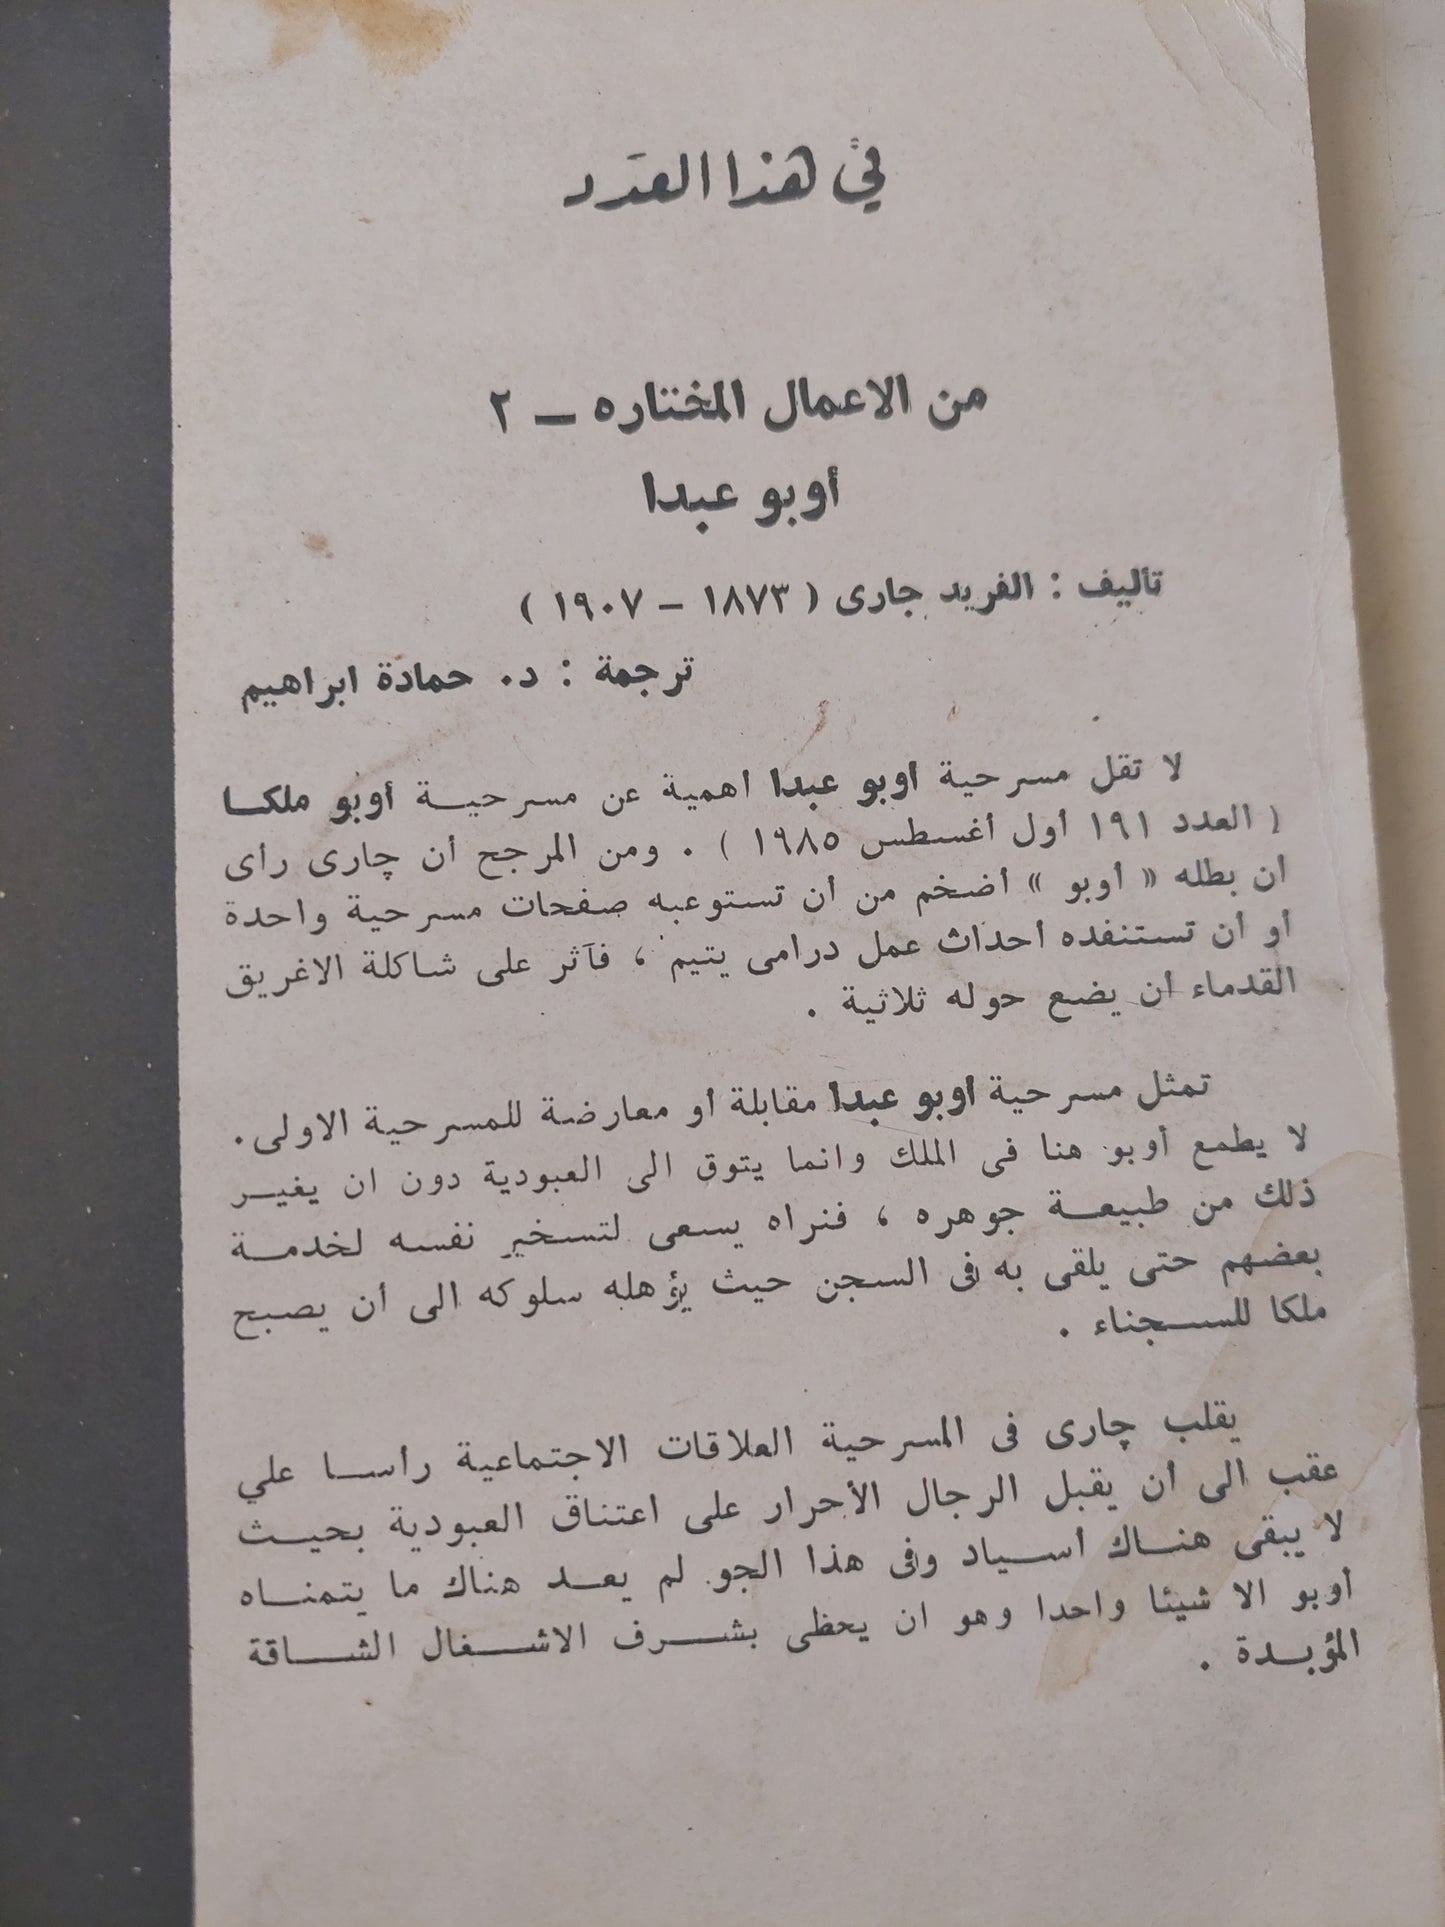 في هذا العدد
من الاعمال المختاره — ٢
أوبو عبدا
تأليف : الفريد جارى ( ١٨٧٣ — ١٩٠٧ )
ترجمة : د. حمادة ابراهيم
لا تقل مسرحية اوبو عبدا اهمية عن مسرحيــة أوبو ملكــا
( العدد ١٩١ أول أغسطس ١٩٨٥ ) . ومن المرجح أن چارى رأى
أن بطله « أوبو » أضخم من أن تستوعبه صفحات مسرحية واحدة
أو أن تستنفده أحداث عمل درامى يتيم ، فآثر على شاكلة الاغريق
القدماء أن يضع حوله ثلاثية .
تمثل مسرحية اوبو عبدا مقابلة أو معارضة للمسرحية الاولى.
لا يطمع أوبو هنا فى الملك وانما يتوق الى العبودية دون ان يغيــر
ذلك من طبيعــة جوهره ، فنراه يسعى لتسخير نفسه لخدمــة
بعضهم حتى يلقى به فى السجن حيث يؤهله سلوكه الى أن يصبح
ملكا للســجناء .
يقلب چارى فى المسرحية العلاقات الاجتماعية رأســا علي
عقب الى أن يقبل الرجال الأحرار على اعتناق العبودية بحيــث
لا يبقى هنــاك أســياد وفى هذا الجو لم يعــد هناك ما يتمنــاه
أوبو الا شيئا واحدا وهو ان يحظى بشــرف الاشــغال الشــاقة
المؤبــدة .